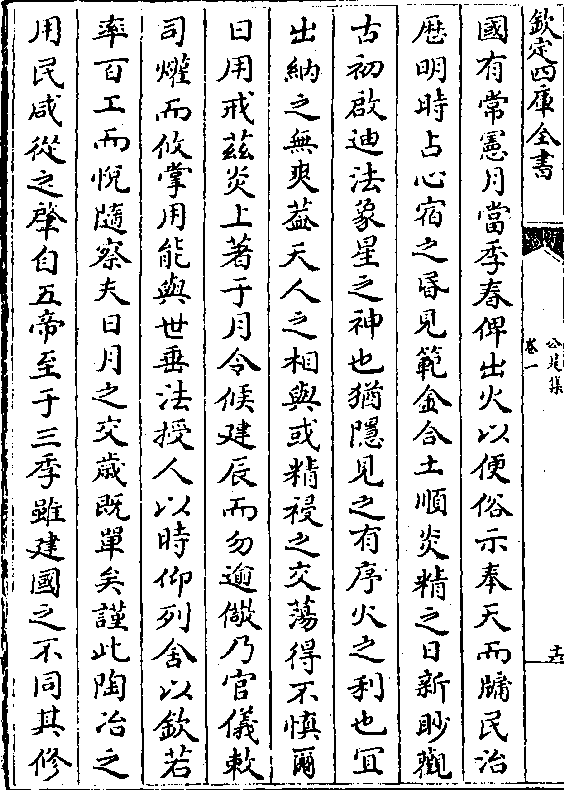 欽定四庫全書
公是集
卷一
國有常憲月當季春俾出火以便俗示奉天而牖民治
厯明時占心宿之昏見範金合土順炎精之日新眇觀
古初啟迪法象星之神也猶隱見之有序火之利也冝
出納之無爽葢天人之相與或精祲之交蕩得不慎爾
日用戒兹炎上著于月令候建辰而勿逾儆乃官儀敕
司爟而攸掌用能與世垂法授人以時仰列舍以欽若
率百工而悅隨察夫日月之交嵗既單矣謹此陶冶之
用民咸從之聲自五帝至于三季雖建國之不同其修